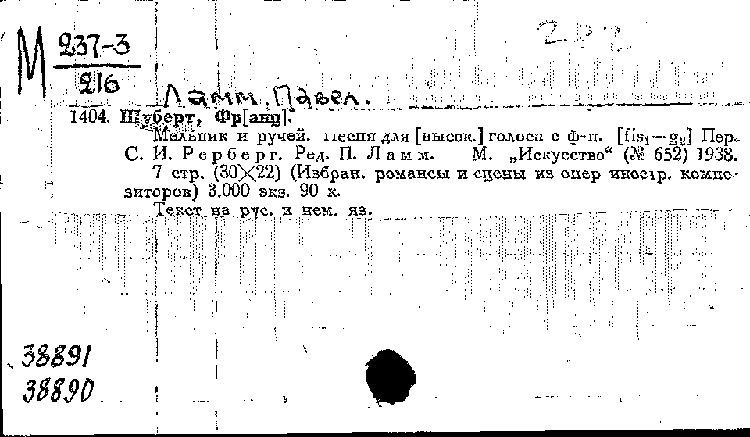 М 237-3
216
Ламм, Павел.
1404. Шуберт, Фр[анц].
Мельник и ручей. Песня для [высок.] голоса с ф-п. [fis₁—g₂] Пер.
С. И. Рерберг. Ред. П. Ламм. М. „Искусство“ (№ 652) 1938.
7 стр. (30×22) (Избран. романсы и сцены из опер иностр. компо-
зиторов) 3.000 экз. 90 к.
Текст на рус. и нем. яз.
38891
38890